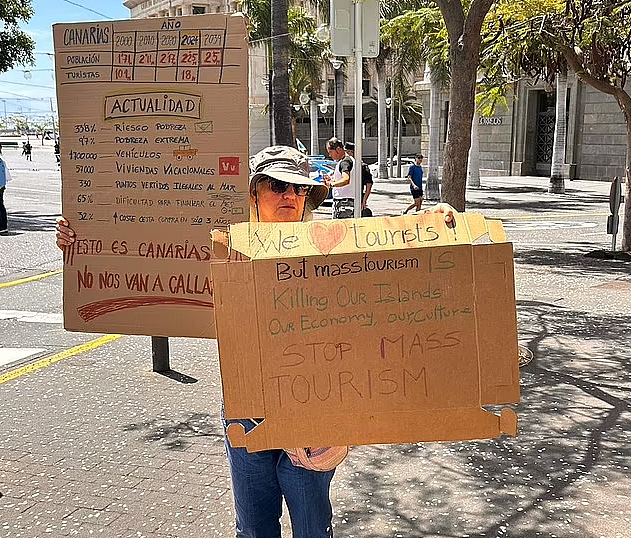 AÑO
CANARIAS 2000 2010 2020 2024 2039
POBLACIÓN
TURISTAS
ACTUALIDAD
33'8% — RIESGO POBREZA
9'7% — POBREZA EXTREMA
— VEHÍCULOS
— VIVIENDAS VACACIONALES Vu
330 PUNTOS VERTIDOS ILEGALES AL MAR
65% DIFICULTAD PARA FINALIZAR
32% — ↑ COSTE CESTA COMPRA EN SÓLO 3 AÑOS
¡¡ESTO ES CANARIAS
NO NOS VAN A CALLA
We ❤ tourists!
But mass tourism IS
Killing Our Islands
Our Economy, our Culture
STOP MASS
TOURISM